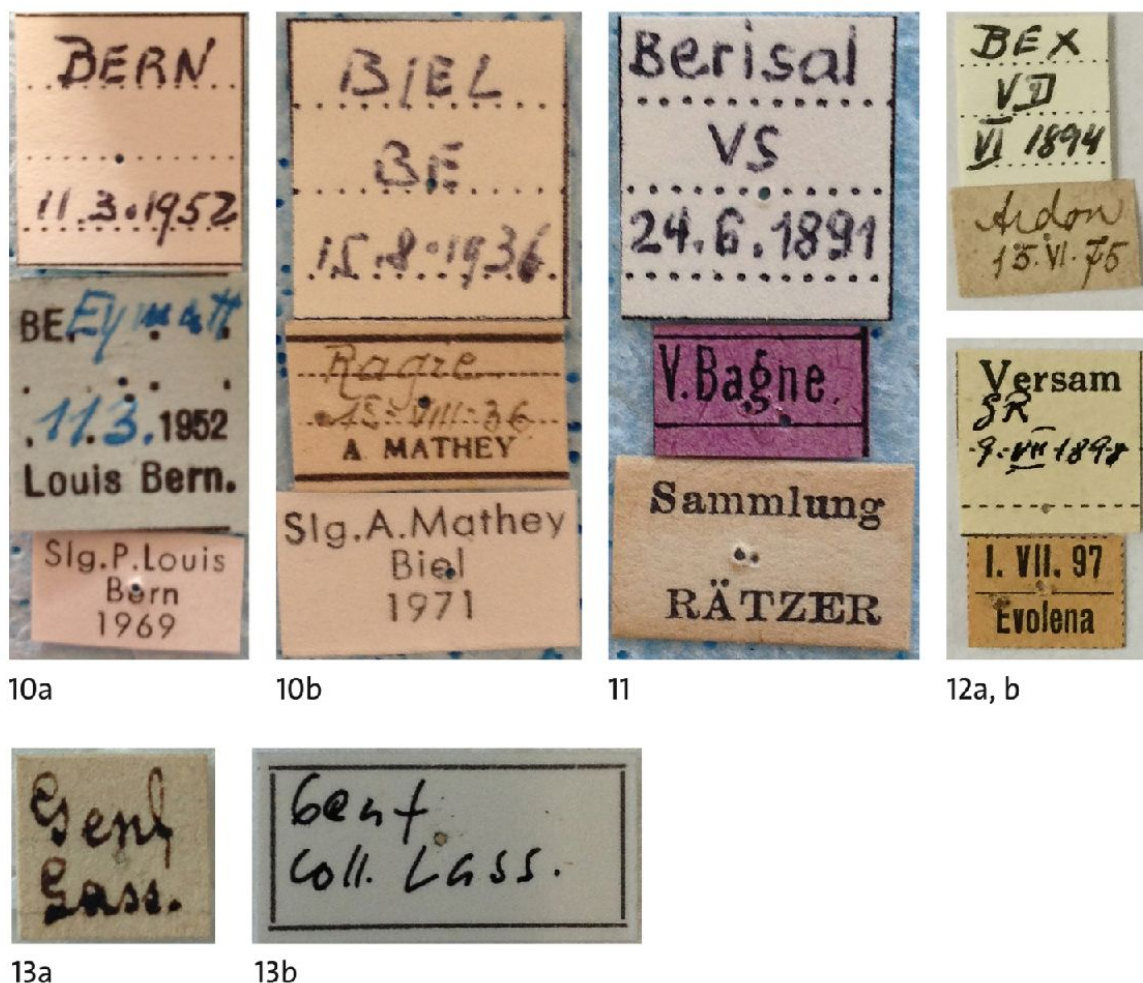 BERN
11.3.1952
BE. Eymatt
11.3.1952
Louis Bern.
Slg.P.Louis
Bern
1969
10a
BIEL
BE
15.8.1936
Ragie
15.VIII.36
A. MATHEY
Slg.A.Mathey
Biel
1971
10b
Berisal
VS
24.6.1891
V.Bagne.
Sammlung
RÄTZER
11
BEX
VD
VI 1894
Ardon
15.VI.75
Versam
GR
9.VII 1898
I. VII. 97
Evolena
12a, b
Genf
Lass.
13a
Genf
Coll. Lass.
13b